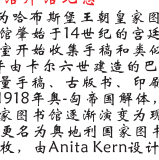 为哈布斯堡王朝皇家图
馆肇始于14世纪的宫廷
室开始收集手稿和类似
年由卡尔六世建造的巴
量手稿、古版书、印刷
1918年奥-匈帝国解体,
家图书馆逐渐演变为现
更名为奥地利国家图书
枚，由Anita Kern设计